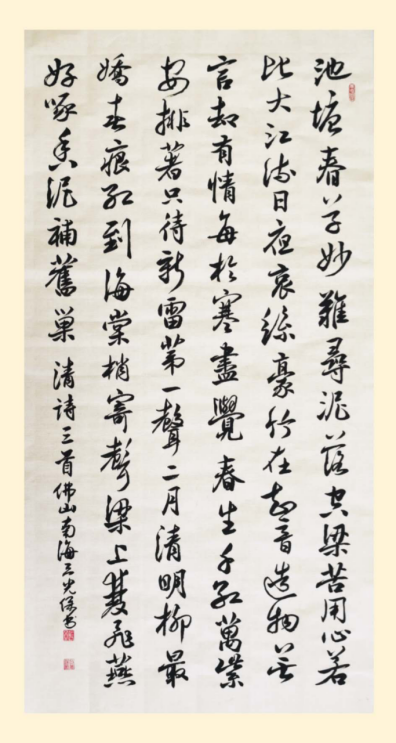 池塘春草妙難尋泥落空梁苦用心若
比大江流日夜哀絲豪竹在知音造物無
言却有情每於寒盡覺春生千紅萬紫
安排著只待新雷第一聲二月清明柳最
嬌春痕紅到海棠梢寄聲梁上雙飛燕
好啄香泥補舊巢 清诗三首佛山南海